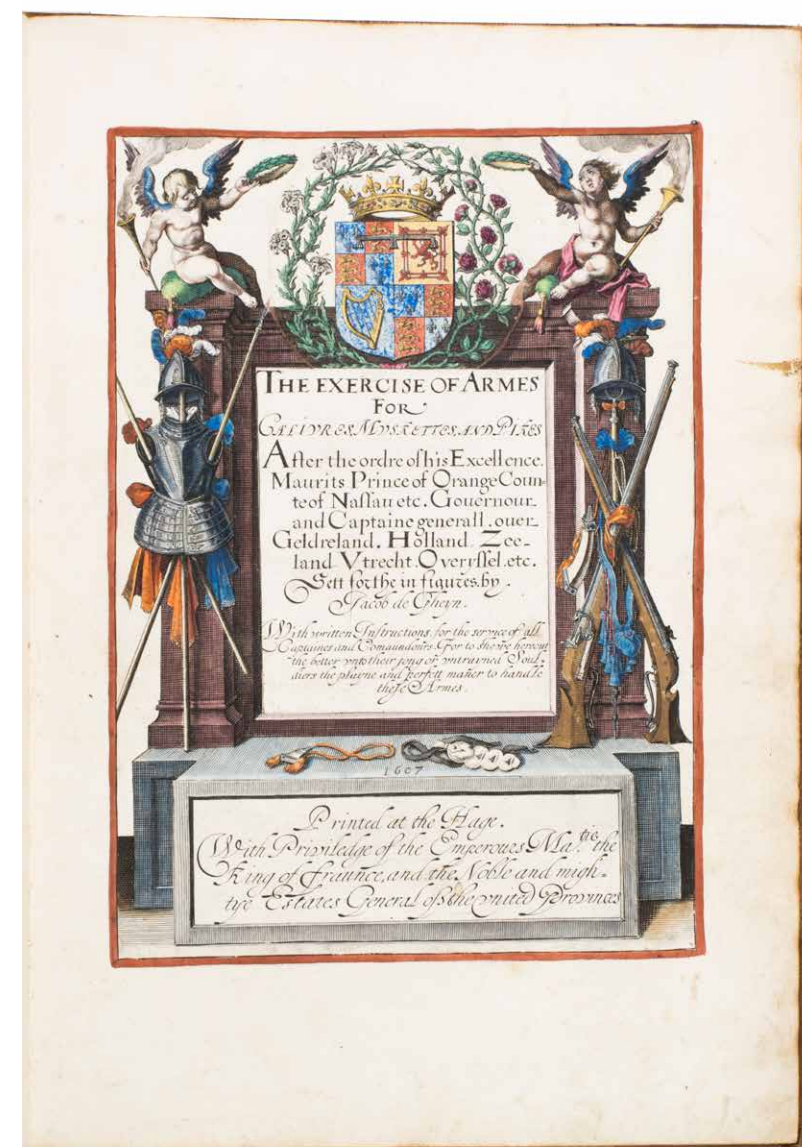 THE EXERCISE OF ARMES
FOR
CALIVRES MVSKETTES AND PIKES
After the ordre of his Excellence
Maurits Prince of Orange Coun-
te of Nassau etc. Gouernour
and Captaine generall ouer
Geldreland. Holland Zee-
land Vtrecht Overyssel. etc.
Sett forthe in figures. by.
Jacob de Gheyn.
With written Instructions. for the service of all
Captaines and Comaundours. For to shewe hereout
the better vnto their jong or vntrayned Soul-
diers the playne and perfett maner to handle
these Armes.
1607
Printed at the Hage.
With Priviledge of the Emperoues Ma.tie the
King of fraunce, and the Noble and migh-
tye Estates General of the vnited Provinces